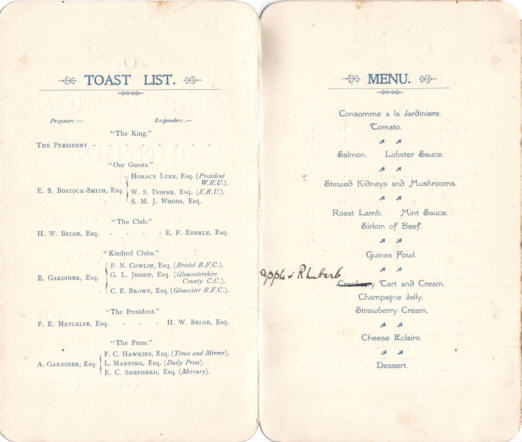 TOAST LIST.
Proposers :— Responders :—
"The King."
THE PRESIDENT - - - - -
"Our Guests."
E. S. BOSTOCK-SMITH, ESQ. { HORACE LYNE, ESQ. (President
W.R.U.).
W. S. DONNE, ESQ. (E.R.U.).
S. M. J. WOODS, ESQ.
"The Club."
H. W. BELOE, ESQ. - - - - E. F. EBERLE, ESQ.
"Kindred Clubs."
E. GARDINER, ESQ. { F. N. COWLIN, ESQ. (Bristol R.F.C.).
G. L. JESSOP, ESQ. (Gloucestershire
County C.C.).
C. E. BROWN, ESQ. (Gloucester R.F.C.).
"The President."
F. E. METCALFE, ESQ. - - - H. W. BELOE, ESQ.
"The Press."
A. GARDINER, ESQ. { F. C. HAWKINS, ESQ. (Times and Mirror).
L. MANNING, ESQ. (Daily Press).
E. C. SHEPHERD, ESQ. (Mercury).
MENU.
Consomme a la Jardiniere.
Tomato.
Salmon. Lobster Sauce.
Stewed Kidneys and Mushrooms.
Roast Lamb. Mint Sauce.
Sirloin of Beef.
Guinea Fowl.
Apple & Rhubarb
Cranberry Tart and Cream.
Champagne Jelly.
Strawberry Cream.
Cheese Eclairs.
Dessert.